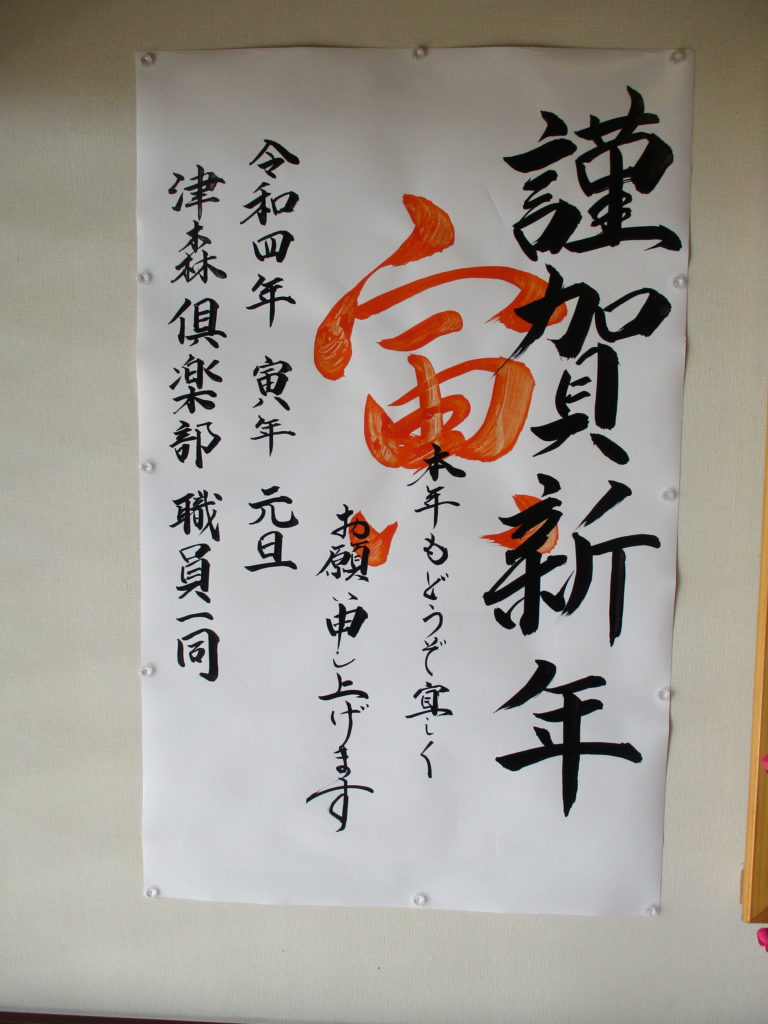 謹賀新年
寅
本年もどうぞ宜しく
お願い申し上げます
令和四年 寅年 元旦
津森倶楽部 職員一同